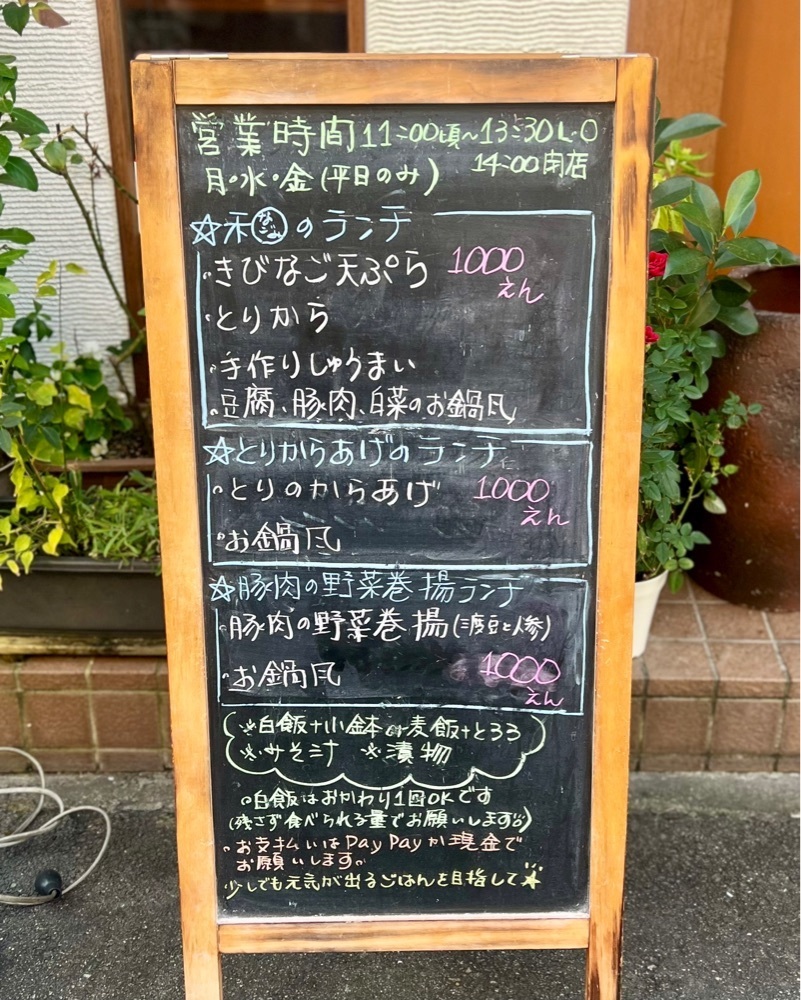 営業時間11:00頃~13:30 L.O
14:00閉店
月・水・金(平日のみ)
☆和なごみのランチ
・きびなご天ぷら 1000えん
・とりから
・手作りしゅうまい
・豆腐、豚肉、白菜のお鍋風
☆とりからあげのランチ
・とりのからあげ 1000えん
・お鍋風
☆豚肉の野菜巻揚ランチ
・豚肉の野菜巻揚(三度豆と人参)
・お鍋風 1000えん
※白飯+小鉢or麦飯+とろろ
※みそ汁 ※漬物
・白飯はおかわり1回OKです
(残さず食べられる量でお願いします)
・お支払いはPayPayか現金で
お願いします。
少しでも元気が出るごはんを目指して☆